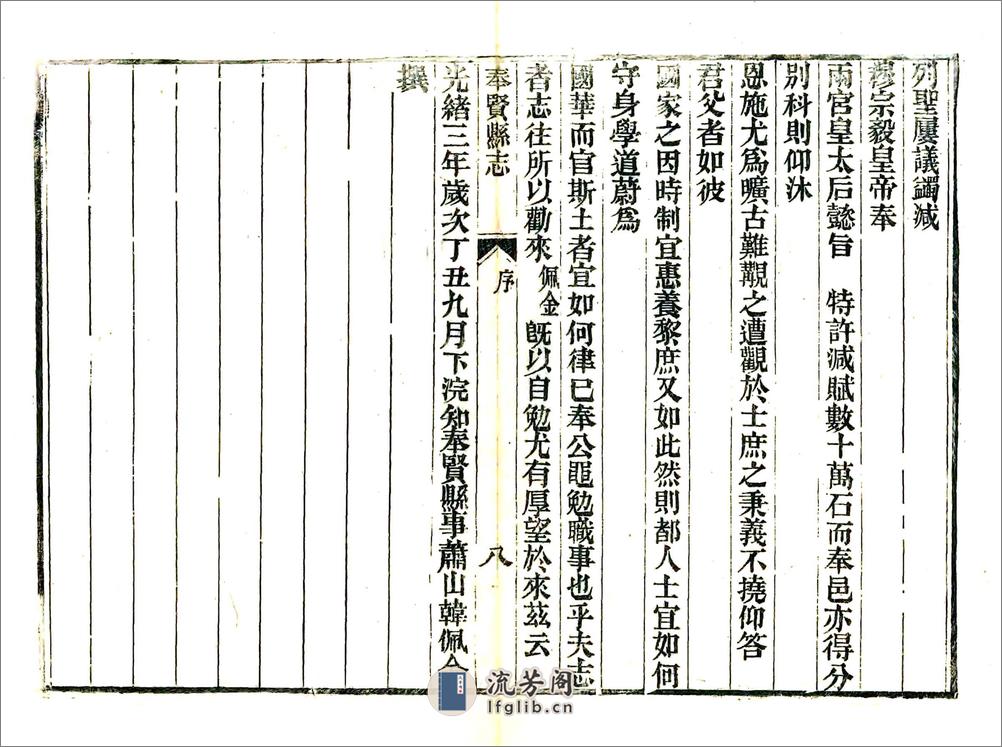 列聖屢議蠲減
穆宗毅皇帝奉
兩宮皇太后懿旨　特許減賦數十萬石而奉邑亦得分
別科則仰沐
恩施尤爲曠古難覯之遭觀於士庶之秉義不撓仰答
君父者如彼
國家之因時制宜惠養黎庶又如此然則都人士宜如何
守身學道蔚爲
國華而官斯土者宜如何律已奉公黽勉職事也乎夫志
者志往所以勸來佩金旣以自勉尤有厚望於來茲云
奉賢縣志　序　八
光緒三年歲次丁丑九月下浣知奉賢縣事蕭山韓佩金
撰
流芳阁
lfglib.cn